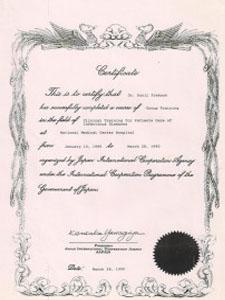 Certificate
This is to certify that Dr. Sunil Prakash
has successfully completed a course of Group Training
in the field of Clinical Training for Patients Care of
Infectious Diseases
at National Medical Center Hospital
from January 10, 1990 to March 28, 1990
organized by Japan International Cooperation Agency
under the International Cooperation Programme of the
Government of Japan.
President
Japan International Cooperation Agency
Date: March 28, 1990